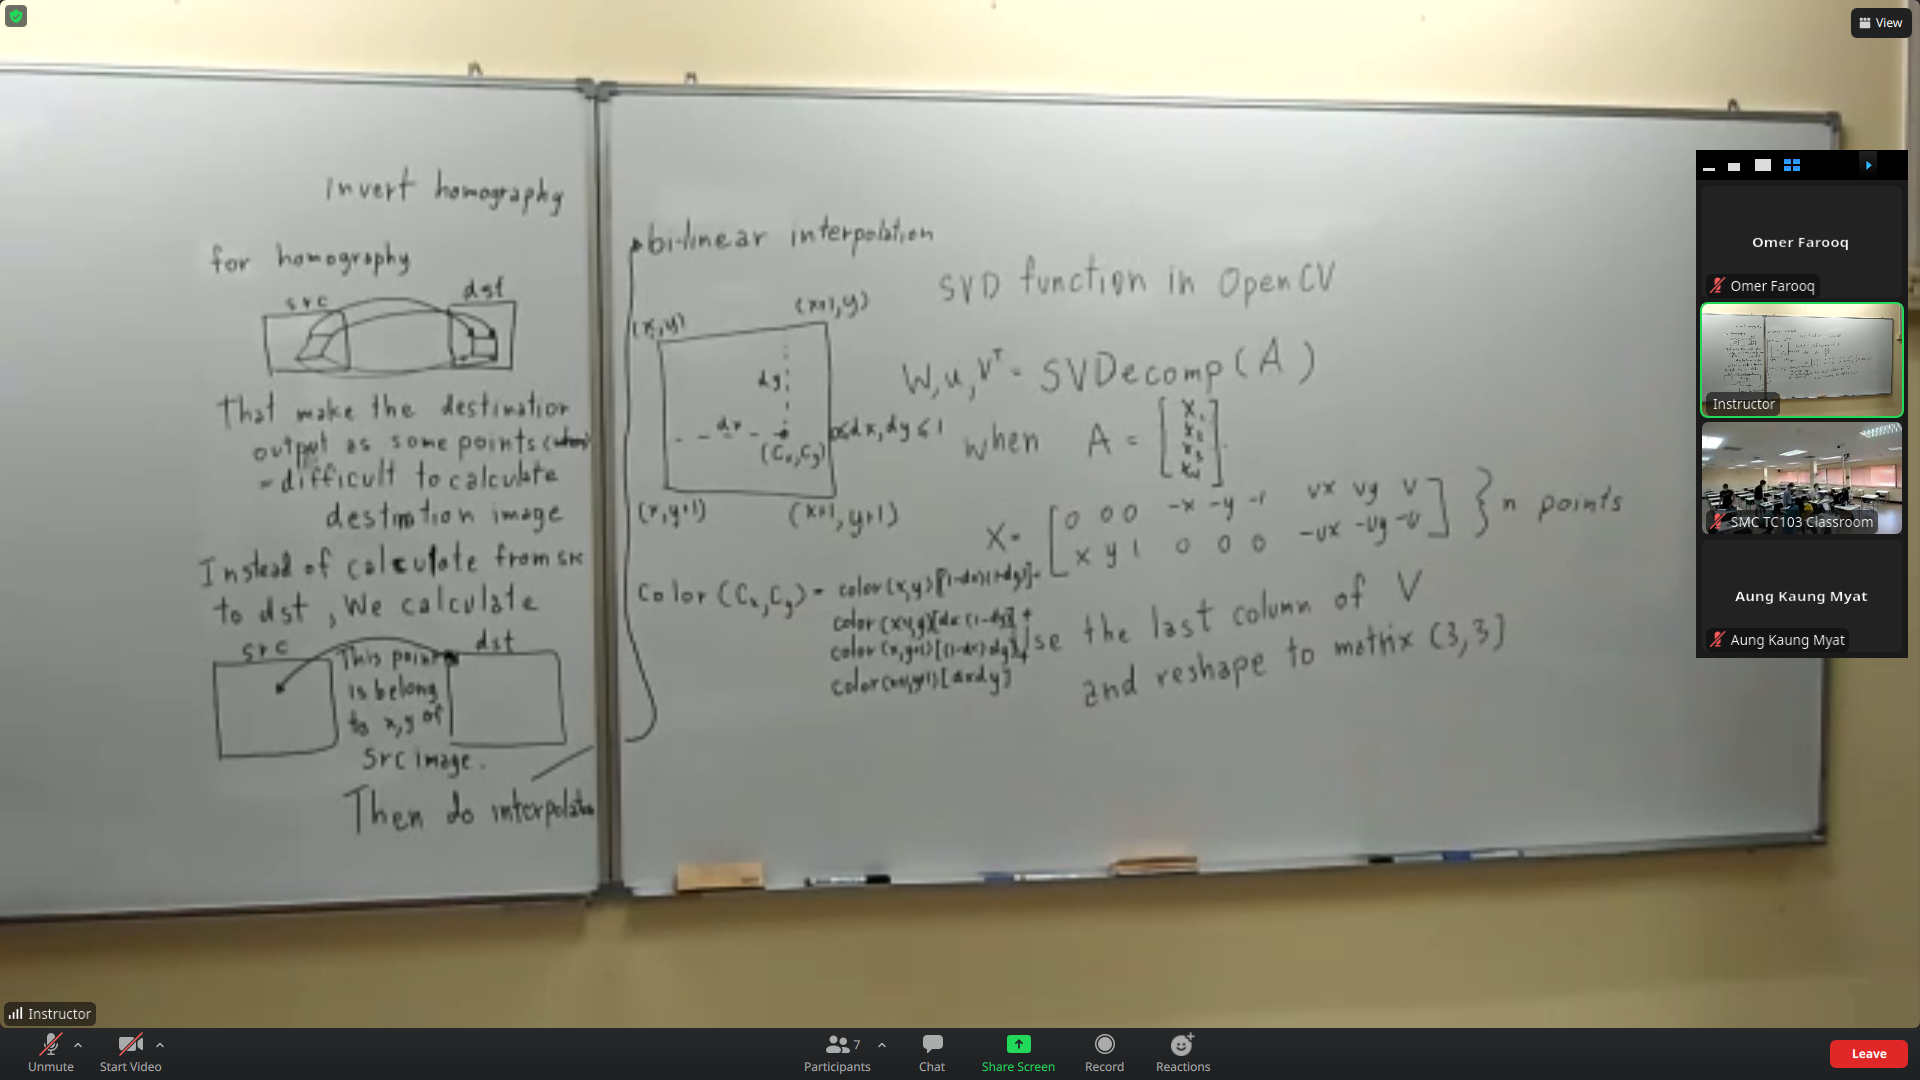 View
invert homography
for homography
src dst
That make the destination
output as some points
- difficult to calculate
destination image
Instead of calculate from src
to dst, We calculate
src dst
This point
is belong
to x,y of
src image.
Then do interpolation
bi-linear interpolation
(x,y) (x+1,y)
dy
dx
(Cx,Cy)
0≤dx,dy≤1
(x,y+1) (x+1,y+1)
Color (Cx,Cy) = color(x,y)[(1-dx)(1-dy)]+
color(x+1,y)[dx(1-dy)] +
color(x,y+1)[(1-dx)dy]+
color(x+1,y+1)[dxdy]
SVD function in OpenCV
W,u,Vᵀ = SVDecomp(A)
when A =
X =
0 0 0 -x -y -1 vx vy v
x y 1 0 0 0 -ux -uy -u
} n points
Use the last column of V
and reshape to matrix (3,3)
Omer Farooq
Omer Farooq
Instructor
SMC TC103 Classroom
Aung Kaung Myat
Aung Kaung Myat
Instructor
Unmute
Start Video
7
Participants
Chat
Share Screen
Record
Reactions
Leave